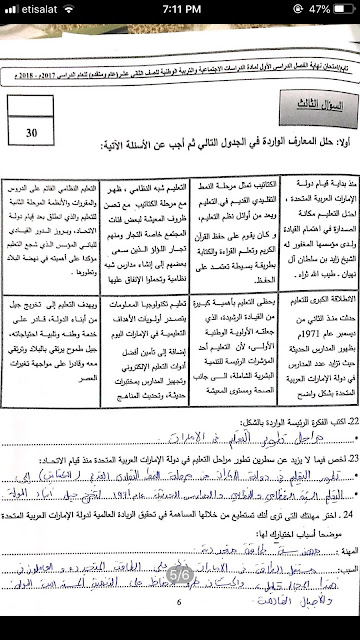 etisalat
7:11 PM
47%
تابع/امتحان نهاية الفصل الدراسي الأول لمادة الدراسات الاجتماعية والتربية الوطنية للصف الثاني عشر (عام ومتقدم) للعام الدراسي 2017م - 2018م
السؤال الثالث
30
أولا: حلل المعارف الواردة في الجدول التالي ثم أجب عن الأسئلة الآتية:
منذ بداية قيام دولة
الإمارات العربية المتحدة ،
احتل التعليم مكانة
الصدارة في اهتمام القيادة
ولدى مؤسسها المغفور له
الشيخ زايد بن سلطان آل
نهيان . طيب الله ثراه .
الكتاتيب تمثل مرحلة النمط
التقليدي القديم في التعليم
ويعد من أوائل نظم التعليم،
و كان يقوم على حفظ القرآن
الكريم وتعلم القراءة والكتابة
بطريقة بسيطة تعتمد على
الحفظ.
التعليم شبه النظامي ، ظهر
مع مرحلة الكتاتيب مع تحسن
ظروف المعيشة لبعض فئات
المجتمع خاصة التجار ومنهم
تجار اللؤلؤ الذين سعى
بعضهم إلى إنشاء مدارس شبه
نظامية وتحملوا الإنفاق عليها
التعليم النظامي القائم على الدروس
والمقررات والأنظمة المرحلة الثانية
للتعليم والذي انطلق بعد قيام دولة
الاتحاد، وبروز الدور القيادي
للباني المؤسس الذي شجع التعليم
مؤكدا على أهميته في نهضة البلاد
وتطورها .
الانطلاقة الكبرى للتعليم
حدثت منذ الثاني من
ديسمبر عام 1971م
بظهور المدارس الحديثة
حيث تزايد عدد المدارس
في دولة الإمارات العربية
المتحدة بشكل واضح
يحظى التعليم بأهمية كبيرة
من القيادة الرشيدة، الذي
جعلته الأولوية الوطنية
الأولى، لأن التعليم أحد
المؤشرات الرئيسة للتنمية
البشرية الشاملة، إلى جانب
الصحة ومستوى المعيشة
تعليم تكنولوجيا المعلومات
يتصدر أولويات الأهداف
التعليمية في الإمارات اليوم
إضافة إلى تأمين أفضل
أدوات التعليم الإلكتروني
وتجهيز المدارس بمختبرات
حديثة، وتحديث المناهج
ويهدف التعليم إلى تخريج جيل
من أبناء الدولة، قادر على
خدمة وطنه وتلبية احتياجاته،
جيل طموح يرتقي بالبلاد وترتقي
معه وقادرا على مواجهة تغيرات
العصر
22. اكتب الفكرة الرئيسة الواردة بالشكل:
مراحل تطور التعليم في الإمارات
23. لخص فيما لا يزيد عن سطرين تطور مراحل التعليم في دولة الإمارات العربية المتحدة منذ قيام الاتحاد:
تطور التعليم في دولة الإمارات من مرحلة النمط التقليدي القديم (الكتاتيب) إلى
التعليم النظامي والمدارس الحديثة عام 1971
24 . اختر مهنتك التي ترى أنك تستطيع من خلالها المساهمة في تحقيق الريادة العالمية لدولة الإمارات العربية المتحدة
موضحا أسباب اختيارك لها:
المهنة : مهندسة طاقة متجددة
السبب: مستقبل الطاقة في الإمارات على الطاقة المتجددة
هذا المجال على
والأجيال القادمة
5/6
6